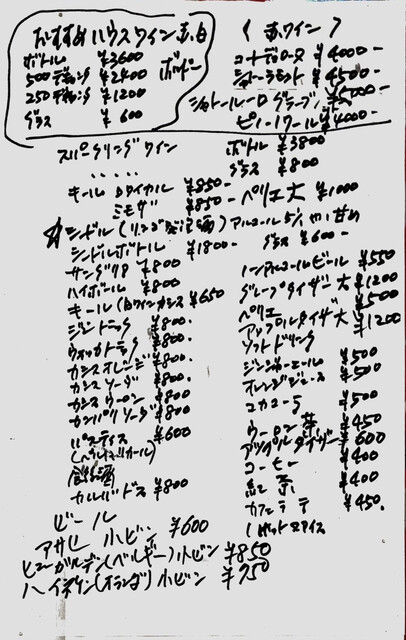 おすすめハウスワイン 赤、白
ボトル ¥3600
500デキャンタ ¥2400
250デキャンタ ¥1200
グラス ¥600
ボルドー
〈赤ワイン〉
コートデローヌ ¥4000-
¥4500-
シャトー ロ グラーブ
¥4000-
スパークリングワイン
ボトル ¥3800
グラス ¥800
キールロワイヤル ¥850-
ミモザ ¥850-
ペリエ大 ¥1000
シードル(リンゴ発泡酒)アルコール5%やや甘め
シードルボトル ¥1800-
グラス ¥600-
サングリア ¥800
ハイボール ¥800
キール(白ワインカシス ¥650
ジントニック ¥800.
ウォッカトニック ¥800.
カシスオレンジ ¥800.
カシスソーダ ¥800.
カシスウーロン ¥800
カンパリソーダ ¥800
パスティス ¥600
(ペルノリカール)
食後酒
カルバドス ¥800
ノンアルコールビール ¥550
グレープタイザー大 ¥1200
ペリエ ¥500
アップルタイザー大 ¥1200
ソフトドリンク
ジンジャーエール ¥500
オレンジジュース ¥500
コカコーラ ¥500
ウーロン茶 ¥450
アップルタイザー ¥600
コーヒー ¥400
紅茶 ¥400
カフェラテ ¥450.
(ホットorアイス
ビール
アサヒ 小ビン ¥600
ヒューガルデン(ベルギー)小ビン ¥850
ハイネケン(オランダ)小ビン ¥750